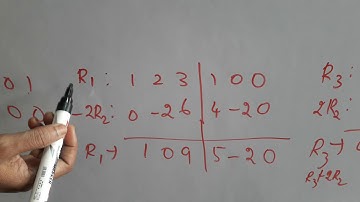 0 1 R₁: 1 2 3 | 1 0 0 R₃:
0 0 -2R₂: 0 -2 6 | 4 -2 0 2R₂:
R₁→ 1 0 9 | 5 -2 0 R₃→
R₃+2R₂